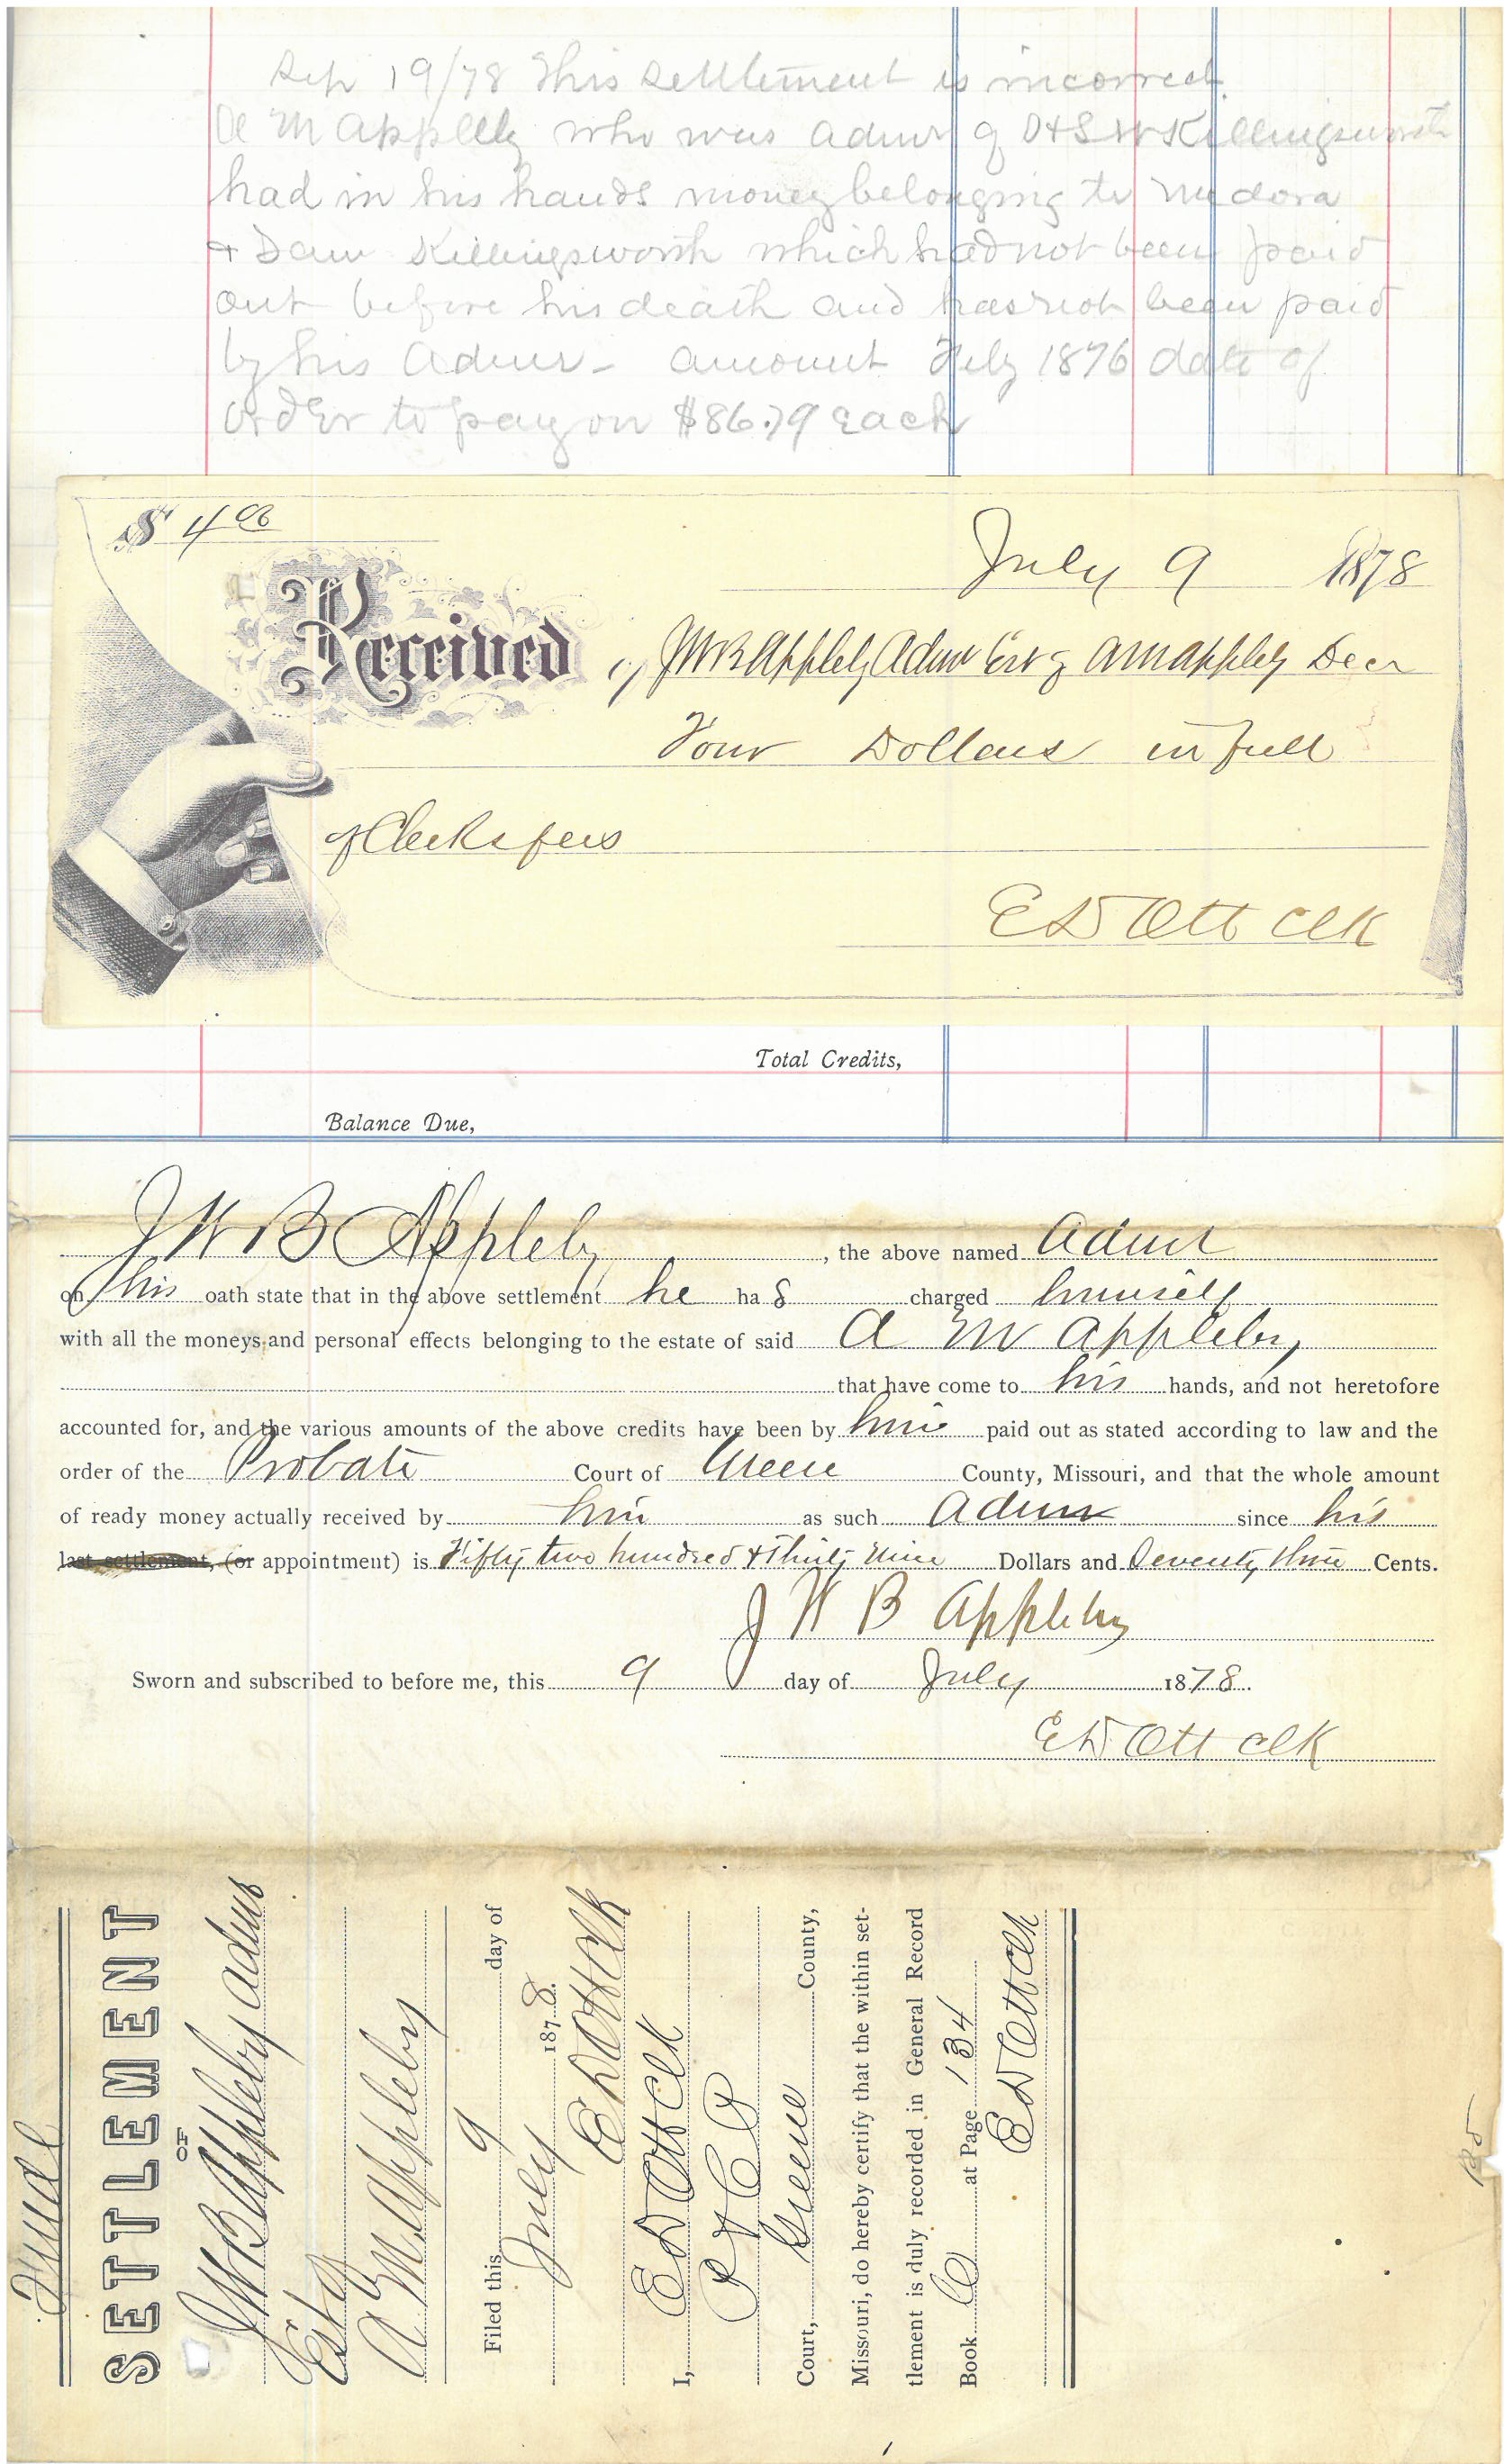 Sep 19/78 This settlement is incorrect.
A M Appleby who was admr of D & S W Killingsworth
had in his hands money belonging to Medora
& Dan Killingsworth which had not been paid
out before his death and has not been paid
by his Admr - amount July 1876 date of
order to pay on $86.79 each
$ 4 00
July 9 1878
Received of JWB Appleby Admr Est of AM Appleby Decd
Four Dollars in full
of Clerks fees
E D Ott Clk
Total Credits,
Balance Due,
J W B Appleby, the above named Admr
on his oath state that in the above settlement he ha s charged himself
with all the moneys and personal effects belonging to the estate of said A M Appleby
that have come to his hands, and not heretofore
accounted for, and the various amounts of the above credits have been by him paid out as stated according to law and the
order of the Probate Court of Greene County, Missouri, and that the whole amount
of ready money actually received by him as such Admr since his
last settlement, (or appointment) is Fifty two hundred & Thirty Nine Dollars and Seventy three Cents.
J W B Appleby
Sworn and subscribed to before me, this 9 day of July 1878.
E D Ott Clk
Final
SETTLEMENT
OF
JWB Appleby Admr
Est of
A M Appleby
Filed this 9 day of
July 1878.
E D Ott Clk
I, E D Ott Clk
Court, Greene County,
Missouri, do hereby certify that the within set-
tlement is duly recorded in General Record
Book C at Page 134
E D Ott Clk